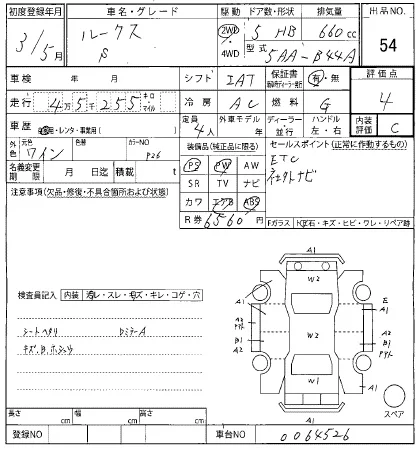 初度登録年月 車名・グレード 駆動 ドア数・形状 排気量 出品NO
3/5月 ルークス S 2WD 4WD 5 HB 660cc 54
型式 5AA-B44A
車検 年 月 シフト IAT 保証書 有・無 評価点
走行 4万5千255 キロ マイル 冷房 AC 燃料 G 4
車歴 自家用・レンタ・事業用( ) 定員 4人 外車モデル 年 ディーラー 並行 ハンドル 左・右 内装評価 C
外色 元色 ワイン 色替 カラーNO P26 装備品(純正品に限る) セールスポイント(正常に作動するもの)
名義変更期限 月 日迄 積載 t PS PW AW ETC
SR TV ナビ
注意事項(欠品・修復・不具合箇所および状態) カワ エアB ABS
R券 6560円 Fガラス
A1
検査員記入 内装 汚レ・スレ・キズ・キレ・コゲ・穴
W2
A1 A1 E
シートヘタリ DミラーA
A3 A1
B1 B1
A2 A2
W2
W1
A1
A1
スペア
長さ cm 幅 cm 高さ cm
登録NO 車台NO 0064526